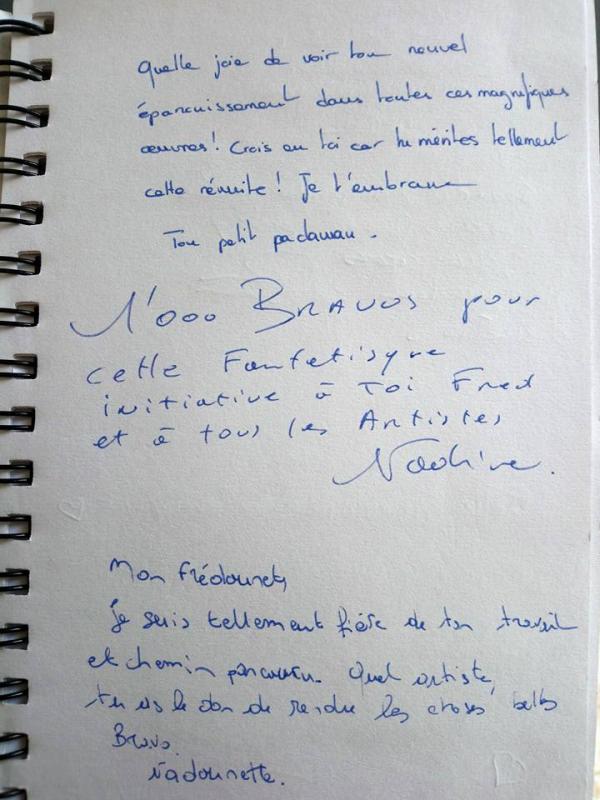 Quelle joie de voir ton nouvel
épanouissement dans toutes ces magnifiques
œuvres ! Crois en toi car tu mérites tellement
cette réussite ! Je t'embrasse
Ton petit padawan.
1'000 BRAVOS pour
cette Fantatisque
initiative à Toi Fred
et à tous les Artistes
Nadine.
Mon Frédounets
Je suis tellement fière de ton travail
et chemin parcouru. Quel artiste,
tu as le don de rendre les choses belles
Bravo.
Nadounette.